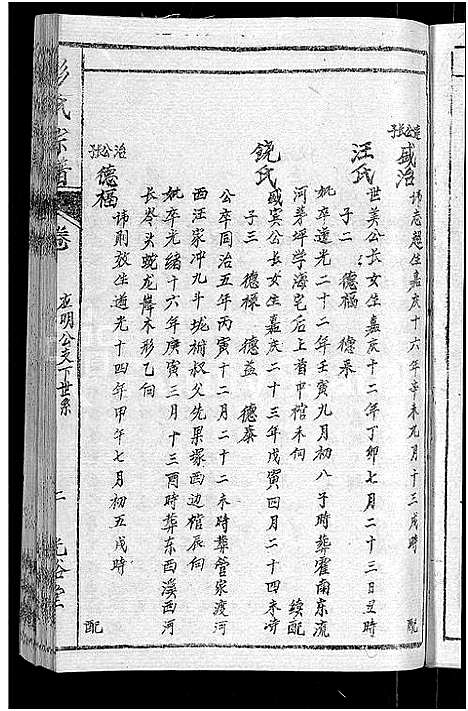 盛治 諱志超生嘉庆十六年辛未元月十三戌時 配
汪氏 世美公長女生嘉庆十二年丁卯七月二十三日丑時
子二 德福 德泰
妣卒道光二十二年壬寅九月初八子時葬霍南东流
河茅坪学海宅后上首中棺禾向 续配
饶氏 盛宾公長女生嘉庆二十三年戊寅四月二十四未時
子三 德禄 德益 德泰
公卒同治五年丙寅十二月二十二未時葬管家渡河
西汪家冲九斗垅祔叔父先果塚西边棺辰向
妣卒光緒十六年庚寅三月十三酉時葬东西溪西河
長岑头蛇龙岸木形乙向
治公長子 德福 諱則放生道光十四年甲午七月初五戌時 配
彭氏宗譜 卷 应明公支下世系 二 光裕堂